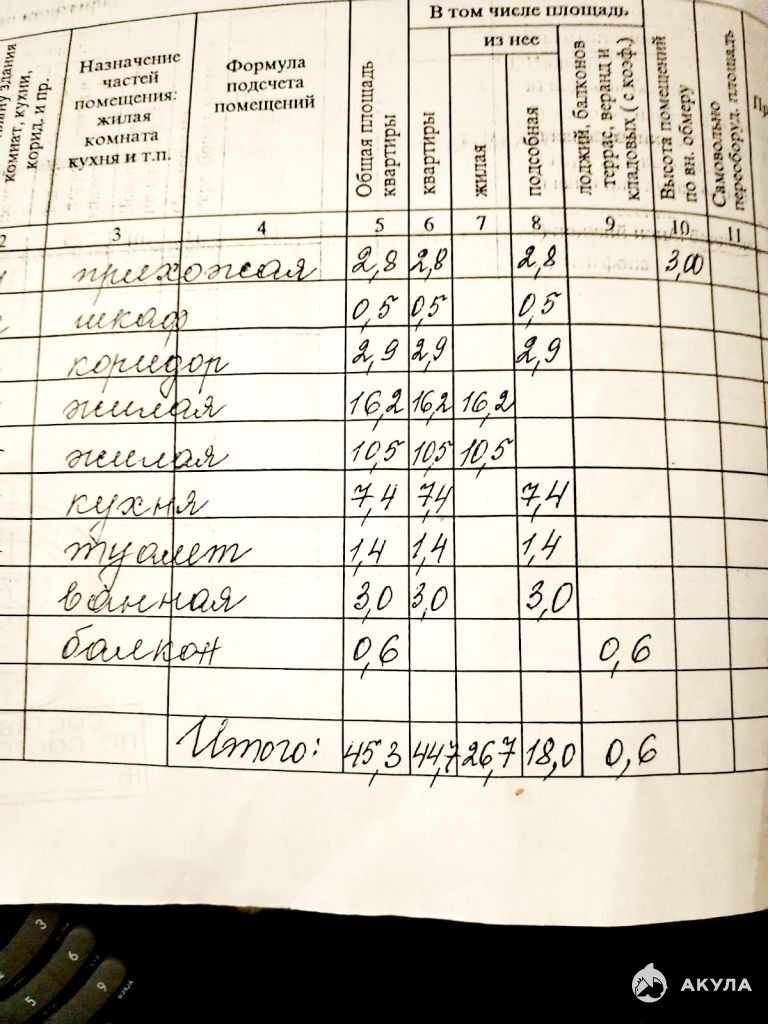 В том числе площадь
из нее
плану здания
комнат, кухни,
корид. и пр.
Назначение
частей
помещения:
жилая
комната
кухня и т.п.
Формула
подсчета
помещений
Общая площадь
квартиры
квартиры
жилая
подсобная
лоджий, балконов
террас, веранд и
кладовых ( с коэф.)
Высота помещений
по вн. обмеру
Самовольно
переоборуд. площадь
2 3 4 5 6 7 8 9 10 11
прихожая 2,8 2,8 2,8 3,00
шкаф 0,5 0,5 0,5
коридор 2,9 2,9 2,9
жилая 16,2 16,2 16,2
жилая 10,5 10,5 10,5
кухня 7,4 7,4 7,4
туалет 1,4 1,4 1,4
ванная 3,0 3,0 3,0
балкон 0,6 0,6
Итого: 45,3 44,7 26,7 18,0 0,6
3
6
5
9
АКУЛА